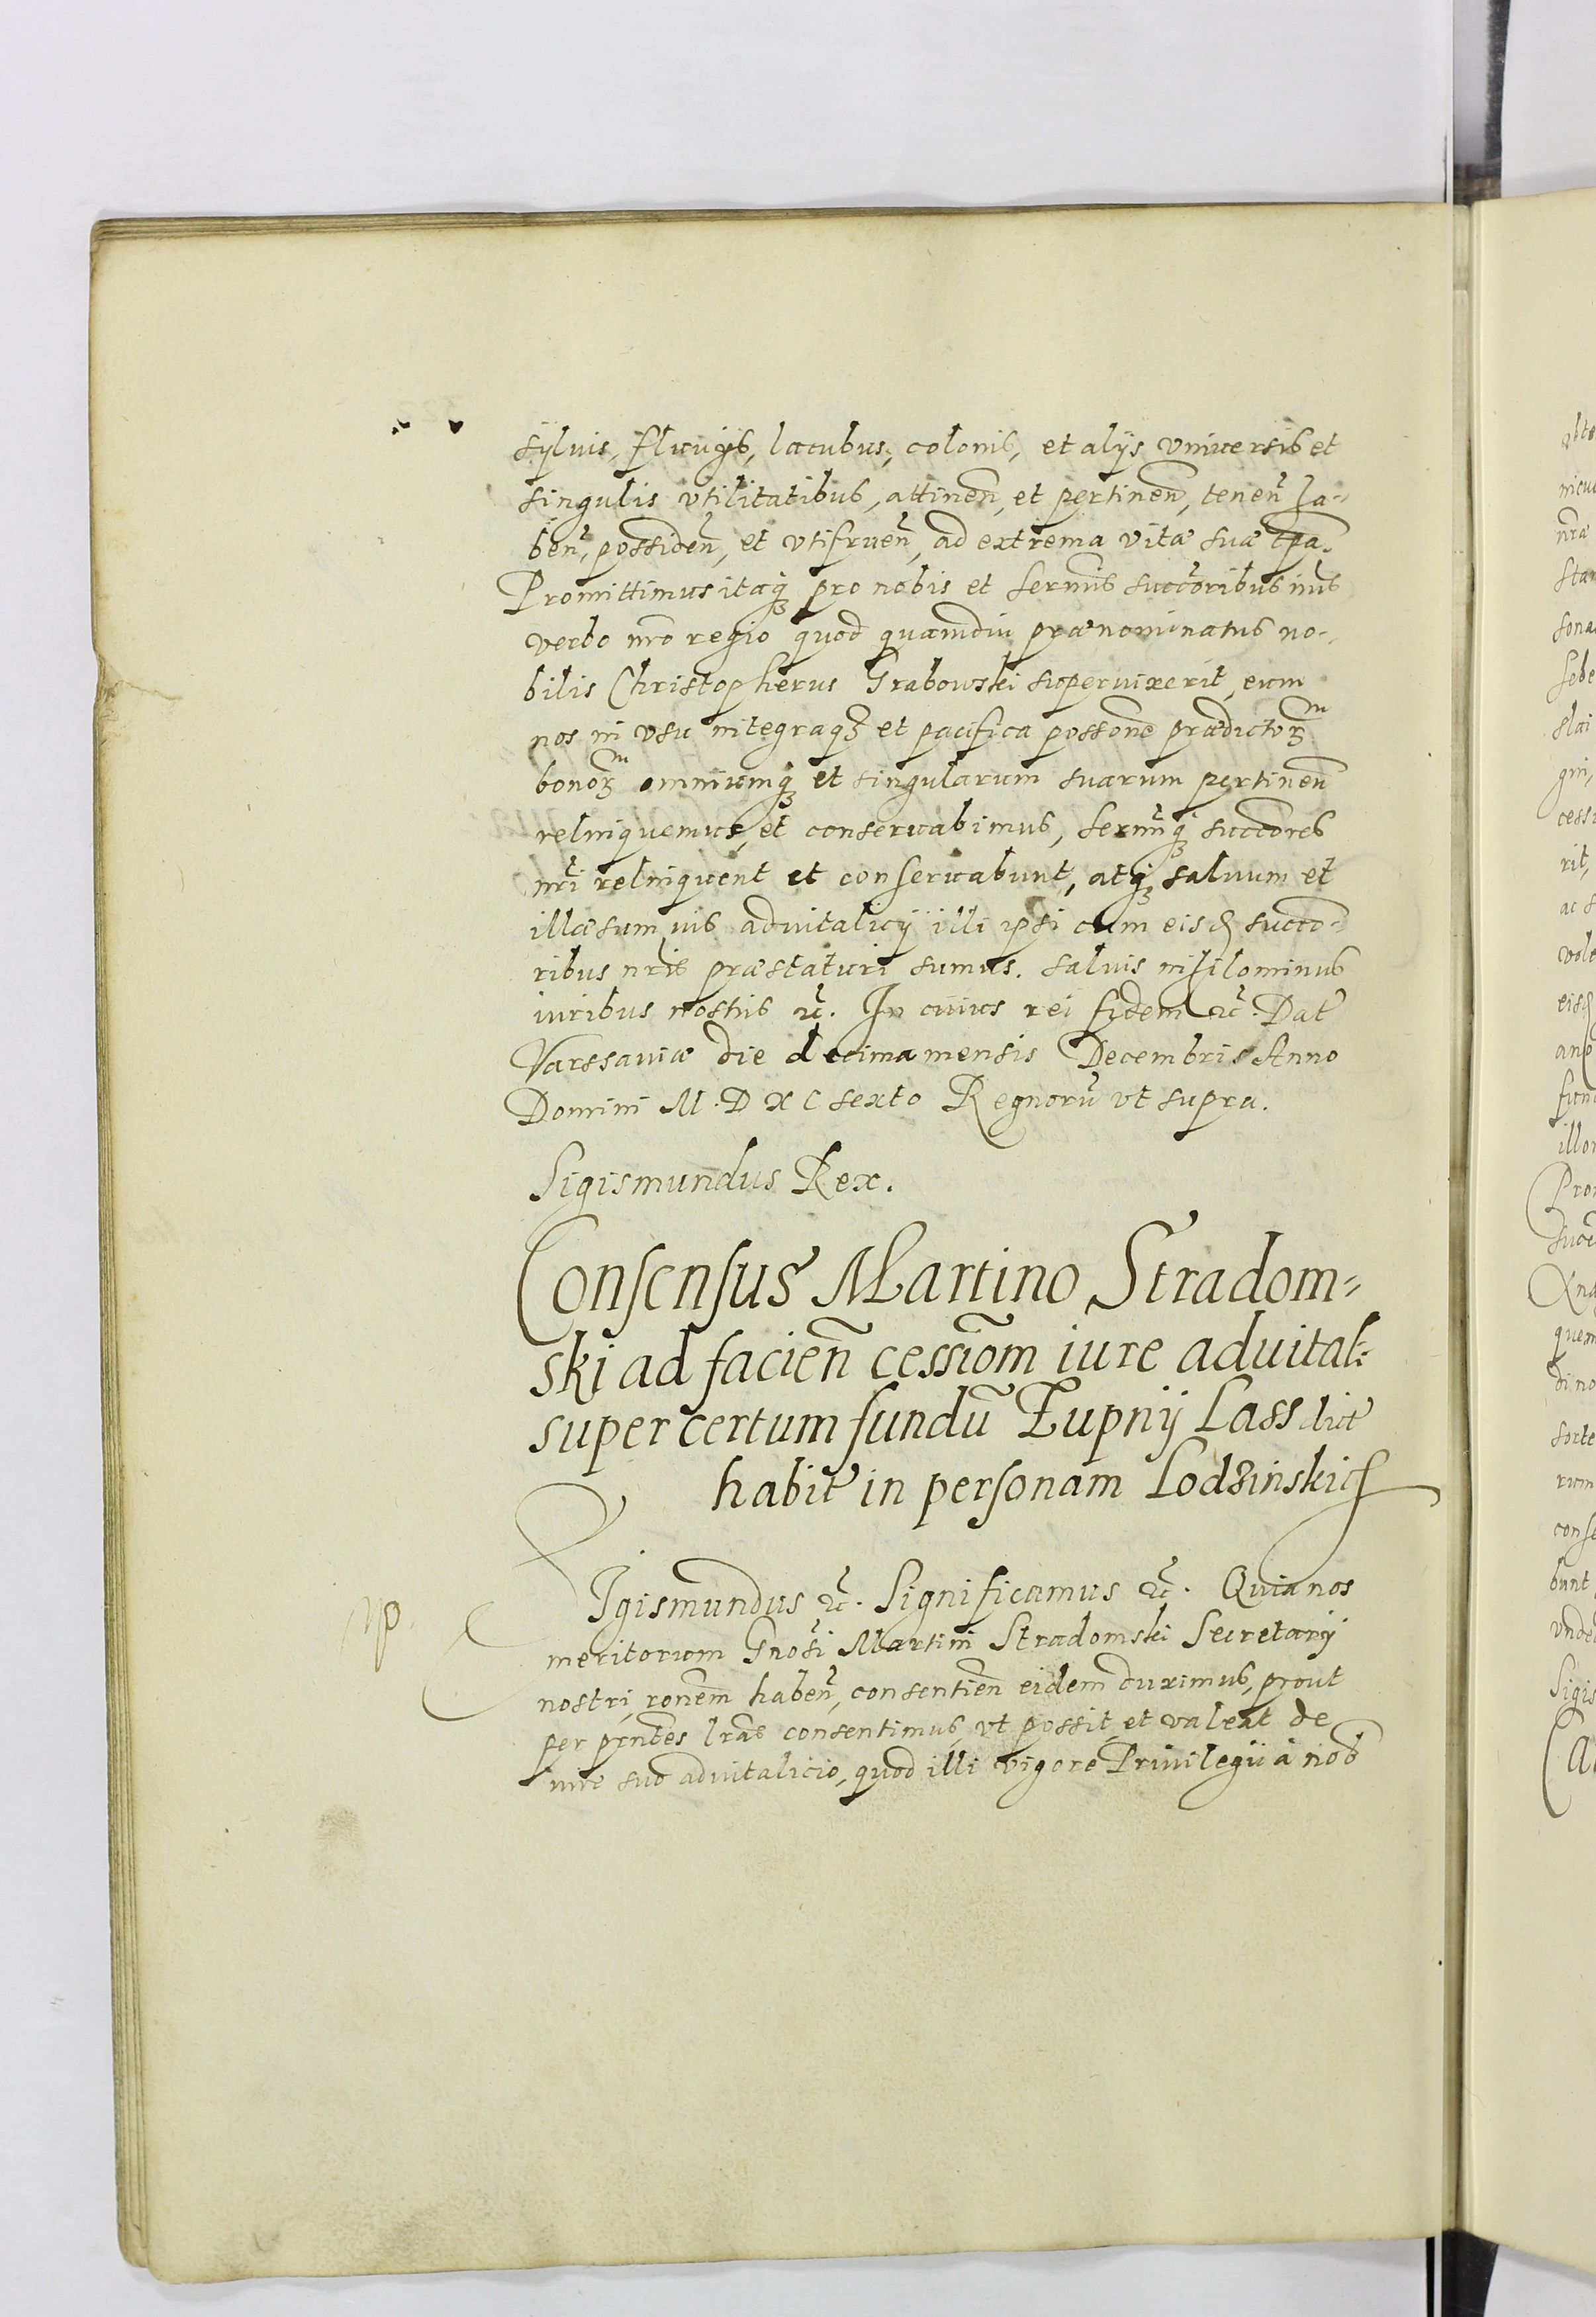 sylvis, fluuijs, lacubus, colonis, et alijs vniuersis et
singulis vtilitatibus, attinen̄, et pertinen̄, tenen̄ ha-
ben̄, possiden̄, et vtifruen̄, ad extrema vitæ suæ tp̄a.
Promittimus itaq꜕ pro nobis et Serm̄is succ̄oribus nr̄is
verbo nr̄o regio quod quamdiu prænominatus no-
bilis Christopherus Grabowski superuixerit, eum
nos in vsu integraqꝫ et pacifica posson̄e prædictoꝝm
bonoꝝm omniumqꝫ et singularum suarum pertinen̄
relinquemus, et conseruabimus, Serm̄iqꝫ succ̄ores
nr̄i relinquent et conseruabunt, atqꝫ saluum et
illæsum ius aduitalicij illi ipsi cum eisd̄ succo-
ribus nr̄is præstaturi sumus. Saluis nihilominus
iuribus nostris ꝛc̄. In cuius rei fidem ꝛc̄. Dat̄
Varssauiæ die decima mensis Decembris Anno
Domini M. D X C sexto Regnorū vt supra.
Sigismundus Rex.
Consensus Martino Stradom=
ski ad facien̄ cessio͞m iure aduital:
super certum fundū Żupnij Lass dict̄
habit̄ in personam Lodzinskich
Sigismundus ꝛc̄. Significamus ꝛc̄. Quia nos
meritorum Gn̄osi Martini Stradomski Secretarij
nostri, ron̄em haben̄, consentien̄ eidem duximus, prout
per pn̄tes lr̄as consentimus, vt possit et valeat de
iure suo aduitalicio, quod illi vigore Priuilegii à nob̄